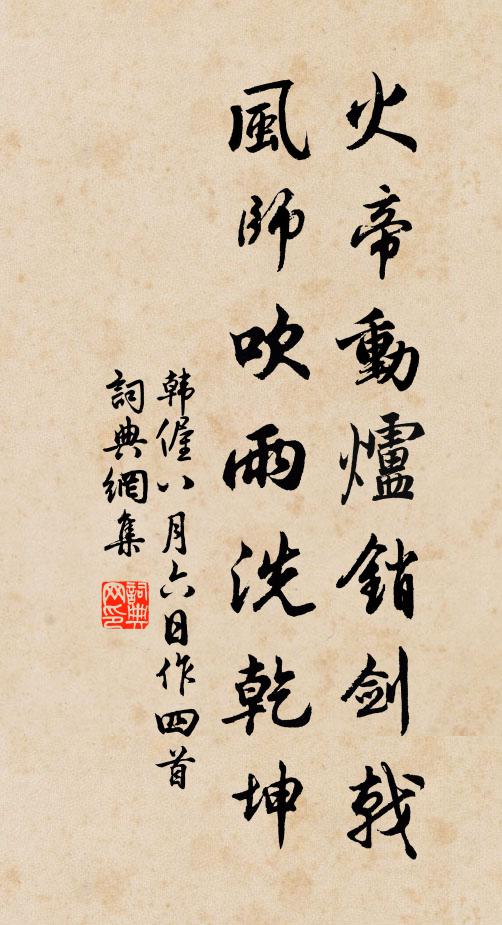 火帝動爐銷劍戟
風師吹雨洗乾坤
韩偓八月六日作四首
詞典網集
詞典网印